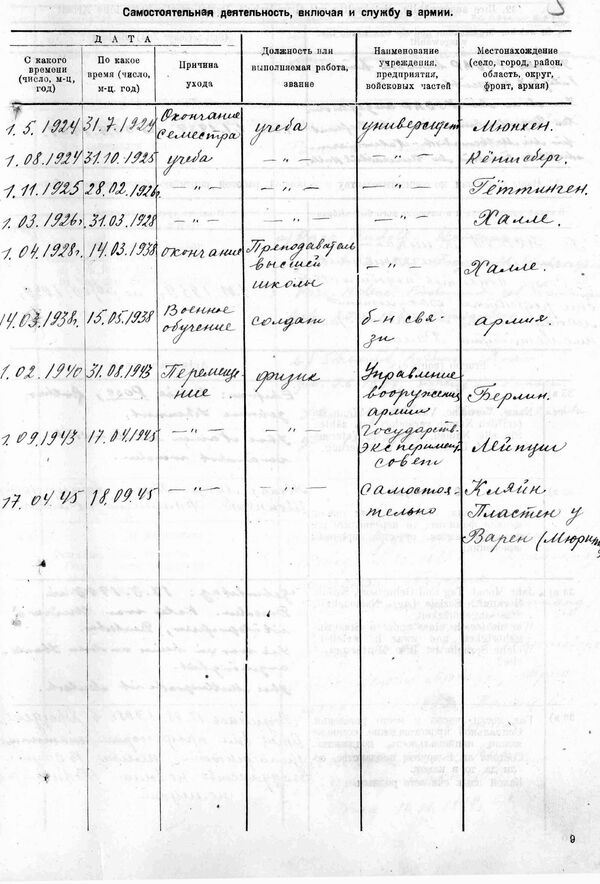 Самостоятельная деятельность, включая и службу в армии.
ДАТА
С какого времени (число, м-ц, год)
По какое время (число, м-ц, год)
Причина ухода
Должность или выполняемая работа, звание
Наименование учреждения, предприятия, войсковых частей
Местонахождение (село, город, район, область, округ, фронт, армия)
1.5.1924 31.7.1924 Окончание семестра учеба университет Мюнхен.
1.08.1924 31.10.1925 учеба —"— —"— Кёнигсберг.
1.11.1925 28.02.1926г. —"— —"— —"— Гёттинген.
1.03.1926г. 31.03.1928 —"— —"— —"— Халле.
1.04.1928г. 14.03.1938 окончание Преподаватель высшей школы —"— Халле.
14.03.1938г. 15.05.1938 Военное обучение солдат б-н связи армия.
1.02.1940 31.08.1943 Перемещение физик Управление вооружения армии Берлин.
1.09.1943 17.04.1945 —"— —"— Государств. эксперимент. совет Лейпциг
17.04.45 18.09.45 —"— —"— самостоятельно Кляйн Пластен у Варен (Мюриц
9